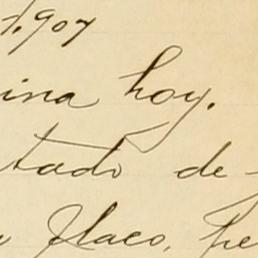 1.907
ina hoy.
tado de-
flaco, pe